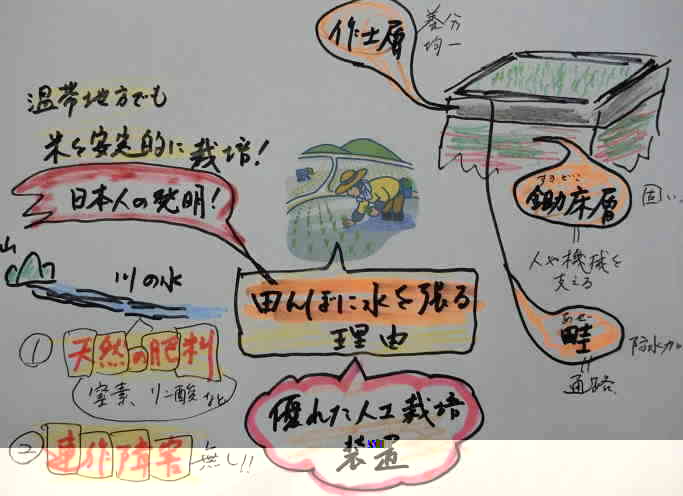 温帯地方でも
米を安定的に栽培!
日本人の発明!
作土層
養分
均一
すきどこ
鋤床層
固い
人や機械を
支える
あぜ
畦
防水加
通路
山
川の水
田んぼに水を張る
理由
① 天然の肥料
窒素、リン酸など
② 連作障害無し!!
優れた人工栽培
装置